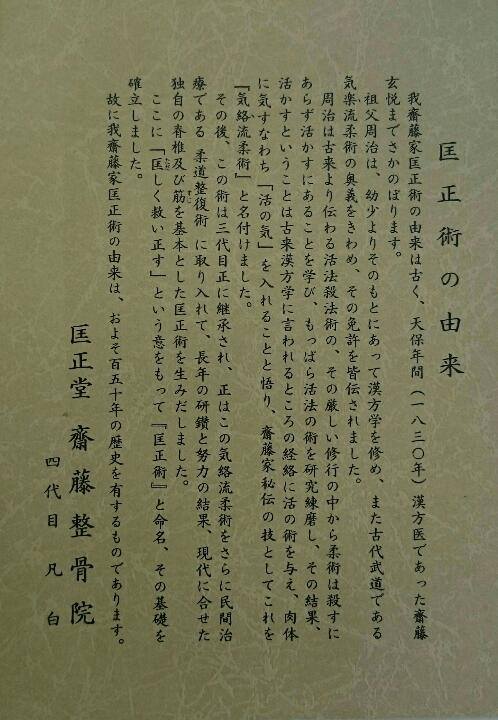 匡正術の由来
我齋藤家匡正術の由来は古く、天保年間（一八三〇年）漢方医であった齋藤
玄悦までさかのぼります。
祖父周治は、幼少よりそのもとにあって漢方学を修め、また古代武道である
気楽流柔術の奥義をきわめ、その免許を皆伝されました。
周治は古来より伝わる活法殺法術の、その厳しい修行の中から柔術は殺すに
あらず活かすにあることを学び、もっぱら活法の術を研究練磨し、その結果、
活かすということは古来漢方学に言われるところの経絡に活の術を与え、肉体
に気すなわち「活の気」を入れることと悟り、齋藤家秘伝の技としてこれを
『気絡流柔術』と名付けました。
その後、この術は三代目正に継承され、正はこの気絡流柔術をさらに民間治
療である 柔道整復術 に取り入れて、長年の研鑽と努力の結果、現代に合せた
独自の脊椎及び筋を基本とした匡正術を生みだしました。
ここに「匡しく救い正す」という意をもって『匡正術』と命名、その基礎を
確立しました。
故に我齋藤家匡正術の由来は、およそ百五十年の歴史を有するものであります。
匡正堂 齋藤整骨院
四代目 凡白